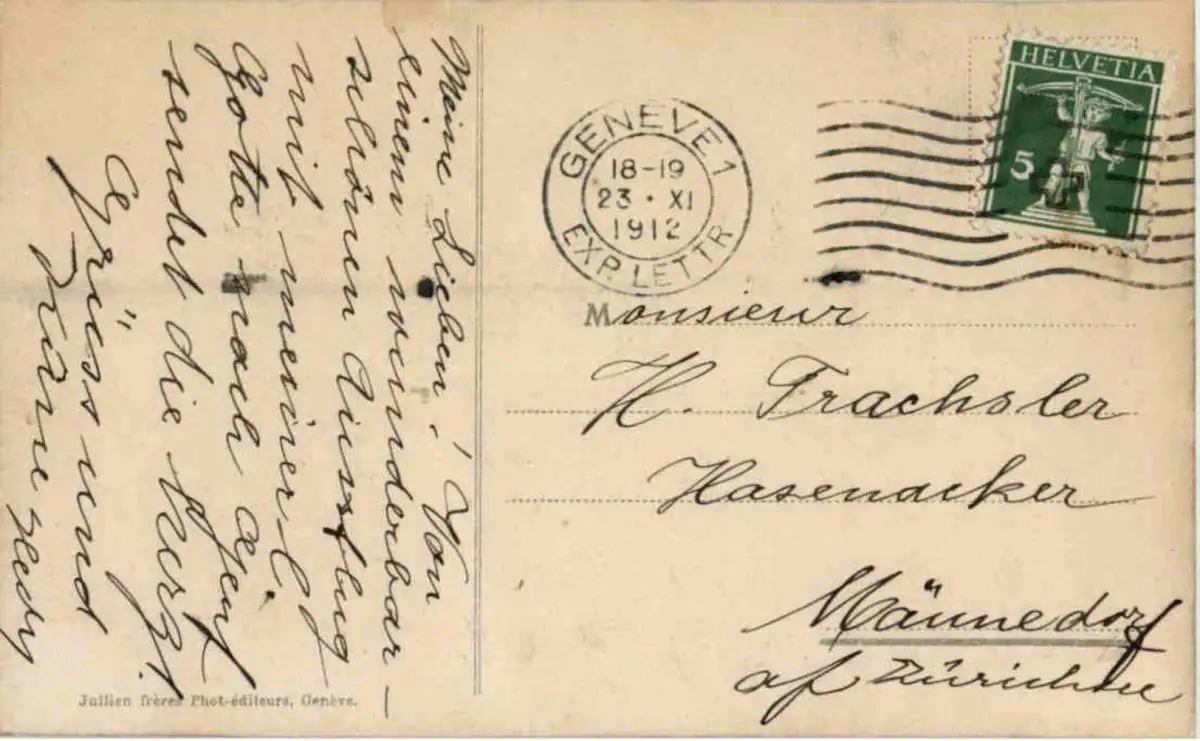 Meine Lieben! Von
einem wunderbar-
schönen Ausflug
mit meiner l.
Gotte nach Genf
sendet die herzl.
Grüss und
Hedy
Jullien frères Phot-éditeurs, Genève.
GENEVE 1
18-19
23 · XI
1912
EXP. LETTR
HELVETIA
5
Monsieur
H. Trachsler
Hasenacker
Männedorf
a/ Zürichsee